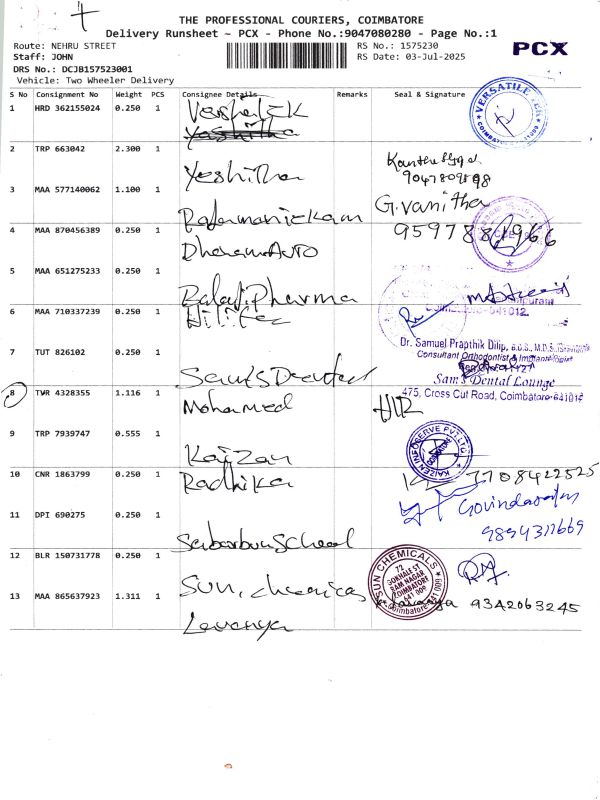 THE PROFESSIONAL COURIERS, COIMBATORE
Delivery Runsheet ~ PCX - Phone No.:9047080280 - Page No.:1
Route: NEHRU STREET
Staff: JOHN
DRS No.: DCJB157523001
Vehicle: Two Wheeler Delivery
RS No.: 1575230
RS Date: 03-Jul-2025
PCX
S No Consignment No Weight PCS Consignee Details Remarks Seal & Signature
1 HRD 362155024 0.250 1
VERSATILE
COIMBATORE
2 TRP 663042 2.300 1 Yeshitha
3 MAA 577140062 1.100 1 Rajamanickam G. Vanitha
4 MAA 870456389 0.250 1 Dharam Auto
5 MAA 651275233 0.250 1 Balaji Pharma
6 MAA 710337239 0.250 1
641012
7 TUT 826102 0.250 1 Sam's Dental
Dr. Samuel Prapthik Dilip, B.D.S., M.D.S.
Consultant Orthodontist & Implantologist
Sam's Dental Lounge
475, Cross Cut Road, Coimbatore-641012
8 TWR 4328355 1.116 1 Mohamed
9 TRP 7939747 0.555 1 Kaizan
KAIZEN INFOSERVE PVT LTD
10 CNR 1863799 0.250 1 Radhika 7708422525
11 DPI 690275 0.250 1 Govindarajan
9894311669
12 BLR 150731778 0.250 1 Sun, chemicas
SUN CHEMICALS
72
GOKHALE ST
RAM NAGAR
COIMBATORE
641 009
13 MAA 865637923 1.311 1 Lavanya 9342063245